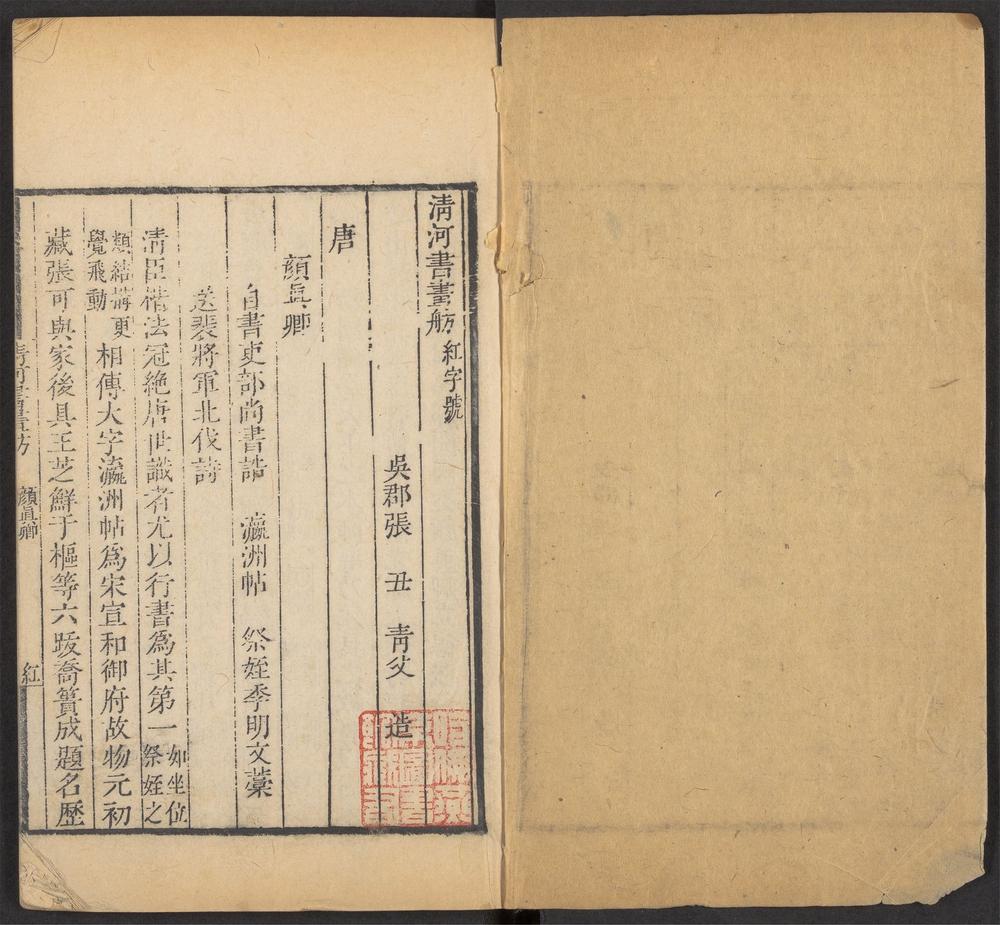 清河書畫舫紅字號
吳郡張 丑 青父 造
唐
顏真卿
自書吏部尚書誥 瀛洲帖 祭姪季明文藁
送裴將軍北伐詩
清臣楷法冠絶唐世識者尤以行書為其第一如坐位
祭姪之
類結搆更
覺飛動相傳大字瀛洲帖爲宋宣和御府故物元初
藏張可與家後具王芝鮮于樞等六跋喬簣成題名歷
清河書畫舫 顏真卿 紅一